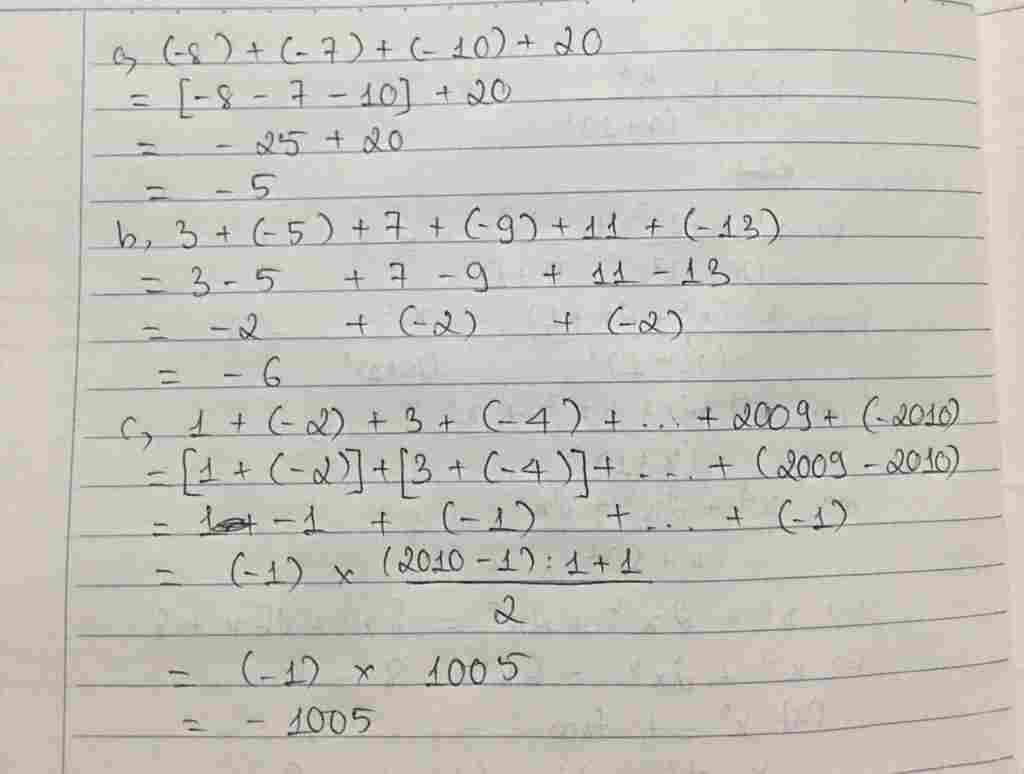 a, (-8) + (-7) + (-10) + 20
= [-8 - 7 - 10] + 20
= - 25 + 20
= - 5
b, 3 + (-5) + 7 + (-9) + 11 + (-13)
= 3 - 5 + 7 - 9 + 11 - 13
= -2 + (-2) + (-2)
= - 6
c, 1 + (-2) + 3 + (-4) + ... + 2009 + (-2010)
= [1 + (-2)] + [3 + (-4)] + ... + (2009 - 2010)
= -1 + (-1) + ... + (-1)
= (-1) × (2010 - 1) : 1 + 1
2
= (-1) × 1005
= - 1005